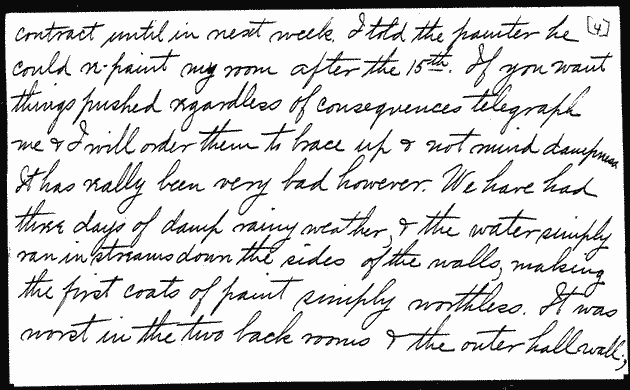 contract until in next week. I told the painter he [4]
could re-paint my room after the 15th. If you want
things pushed regardless of consequences telegraph
me & I will order them to brace up & not mind dampness.
It has really been very bad however. We have had
three days of damp rainy weather, & the water simply
ran in streams down the sides of the walls, making
the first coats of paint simply worthless. It was
worst in the two back rooms & the outer hall wall;